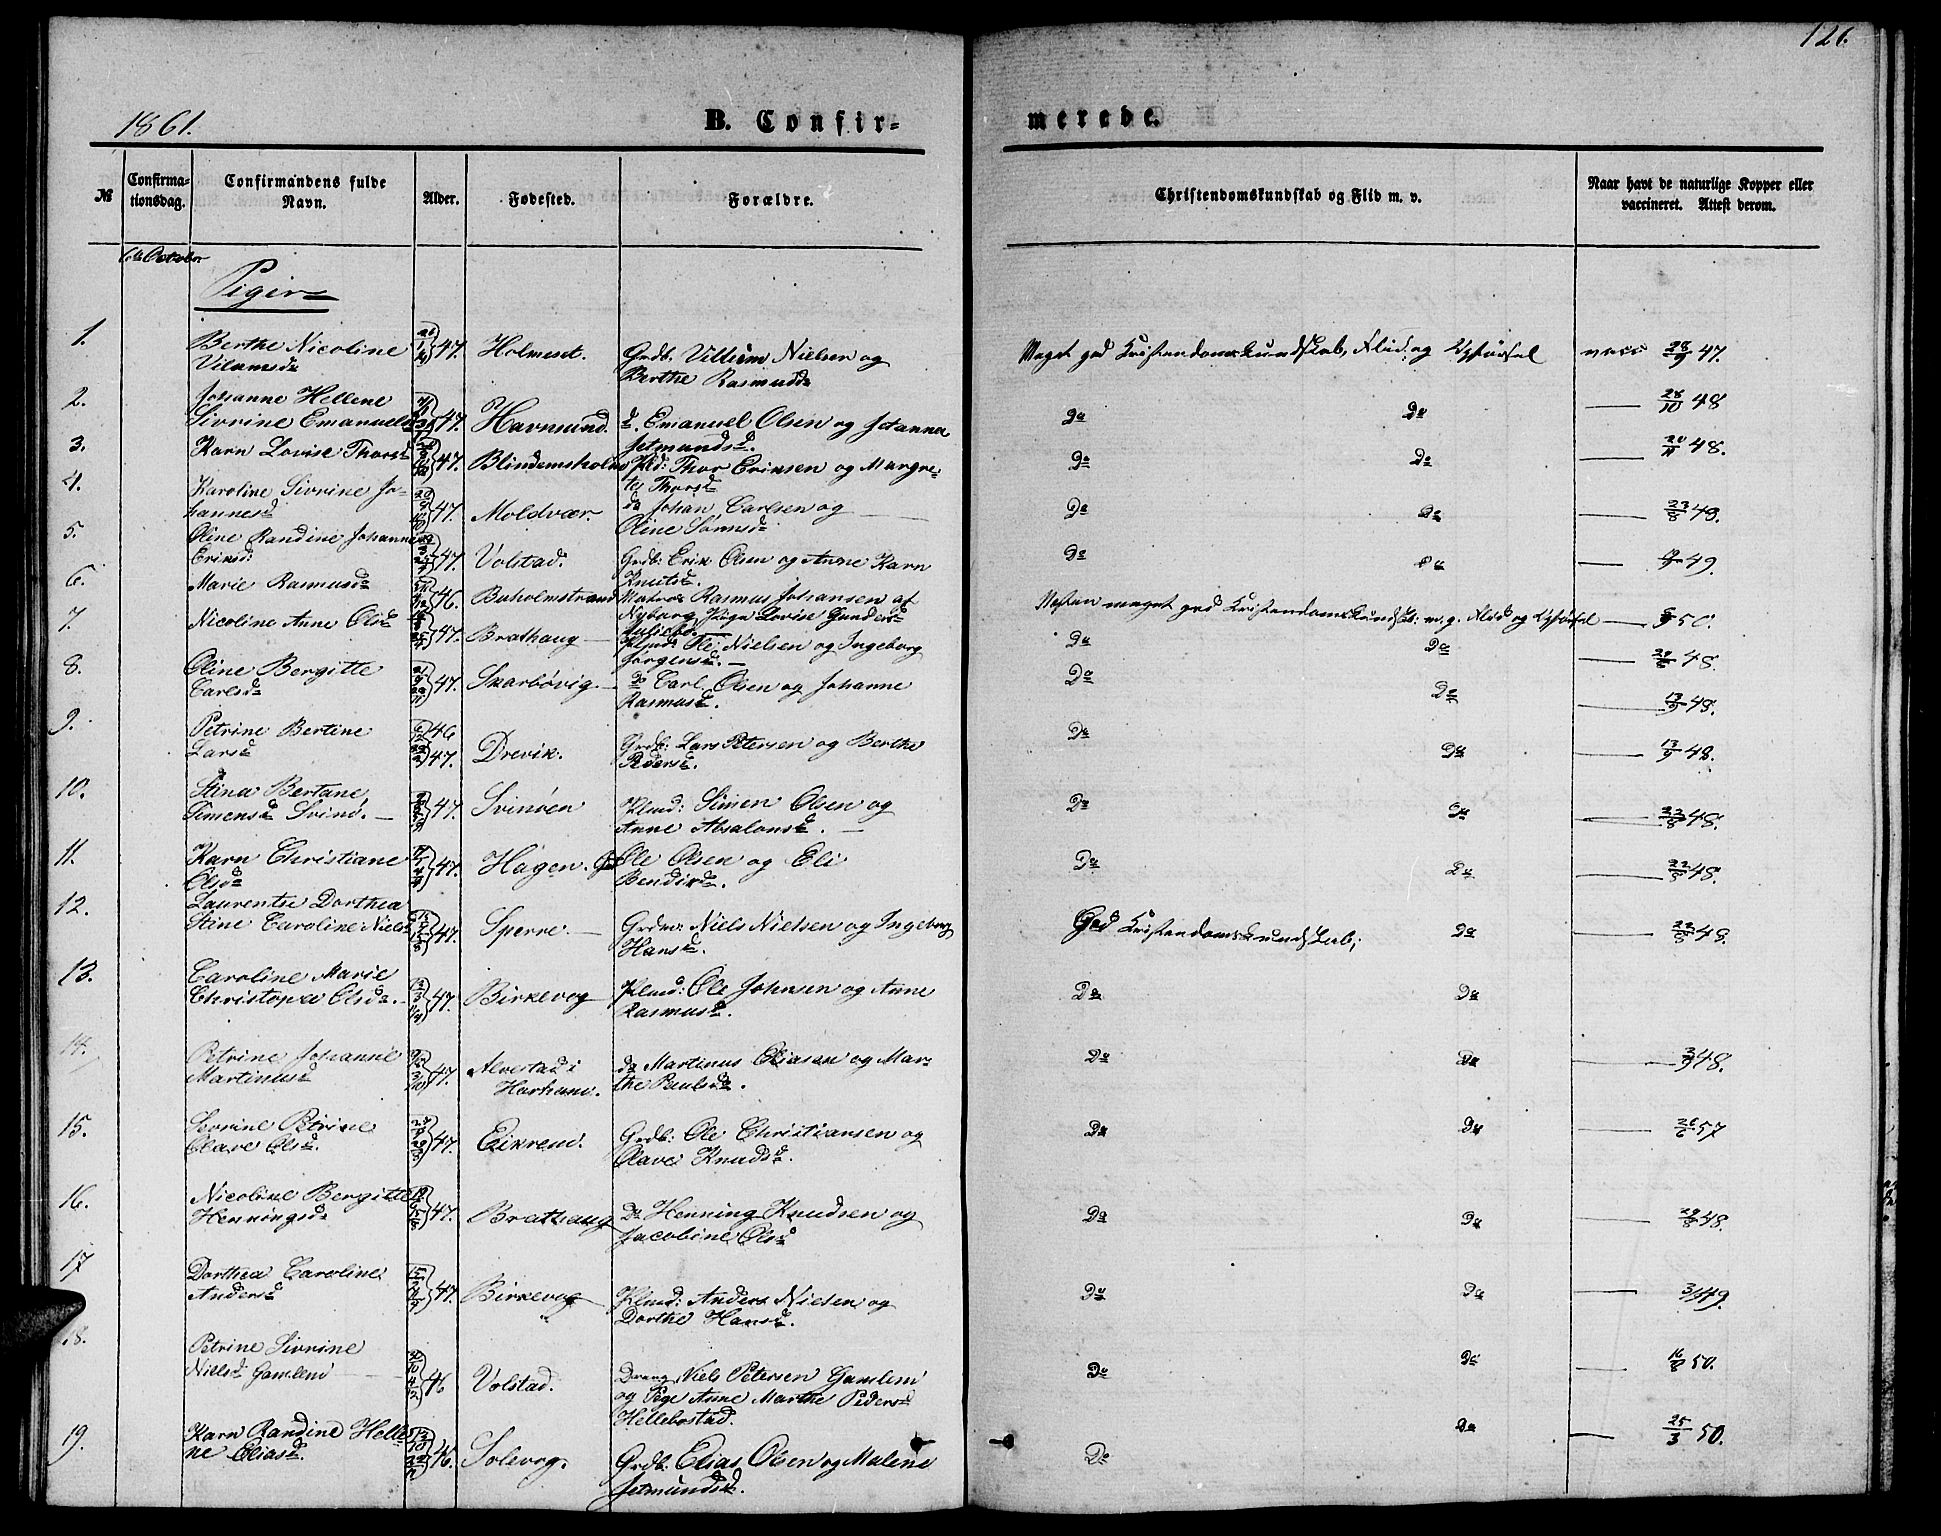 126.
1861.
B. Confir-
merede.
№
Confirma-
tionsdag.
Confirmandens fulde
Navn.
Alder.
Fødested.
Forældre.
Christendomskundskab og Flid m. v.
Naar havt de naturlige Kopper eller
vaccineret. Attest derom.
October
Piger
1.
Berthe Nicoline
Vilumsd
47.
Holmest.
Grdb. Villum Nielsen og
Berthe Rasmusd
Meget god Kristendomskundskab, Flid og Opførsel
vacc 28/9 47.
2.
Johanne Hellene
Sivrine Emanuelsd
47.
Havnsund.
d. Emanuel Olsen og Johanna
Jetmundsd.
Do Do
28/10 48
3.
Karn Lovise Thorsd
47.
Blindemsholm
Plmd: Thor Eriksen og Margre-
te Thorsd
Do Do
20/11 48.
4.
Karoline Sivrine Jo-
hannesd
47.
Moldvær.
do Johan Carlsen og
Oline
Do Do
23/8 48.
5.
Oline Randine Johanne
Eriksd:
47.
Volstad.
Grdb: Erik Olsen og Anne Karn
Knutsd.
Do Do
49.
6.
Marie Rasmusd
46.
Buholmstrand
Matros Rasmus Johansen af
Nyborg, Pige Lovise Gunders
Nesten meget god Kristendomskundsk: m. g. Flid og Opførsel
50.
7.
Nicoline Anne Olsd
47.
Brathaug
Plmd: Ole Nielsen og Ingeborg
Jørgensd.
Do Do
48.
8.
Oline Bergitte
Carlsd
47.
Skarbövig.
do Carl Olsen og Johanne
Rasmusd.
Do Do
13/9 48.
9.
Petrine Bertine
Larsd
46
47.
Drevik.
Grdb: Lars Petersen og Berthe
Pedersd.
Do Do
13/9 48.
10.
Stina Bertane
Simensd Svinö.
47.
Svinöen
Plmd: Simen Olsen og
Anne Absalonsd.
Do Do
23/8 48.
11.
Karn Christiane
Olsd
47.
Hagen.
Ole Olsen og Eli
Bendixd.
Do Do
22/8 48.
12.
Laurentse Dorthea
Stine Caroline Nielsd
47.
Sperre.
Grdm: Niels Nielsen og Ingeborg
Hansd.
God Kristendomskundskab; Do
22/8 48.
13.
Caroline Marie
Christopa Olsd.
47.
Birkevog
Plmd: Ole Johnsen og Anne
Rasmusd.
Do Do
14.
Petrine Johanne
Martinusd
47.
Alvestad i
Harham.
do Martinus Eliasen og Mar-
the Paulsd.
Do Do
3/9 48.
15.
Sevrine Petrine
Olave Olsd.
47.
Eikrem.
Grdb: Ole Christiansen og
Olave Knudsd.
Do Do
26/6 57
16.
Nicoline Bergitte
Henningsd
47.
Brathaug
Do Henning Knudsen og
Jacobine Olsd
Do Do
48.
17
Dorthea Caroline
Andersd
47.
Birkevog
Plmd: Anders Nielsen og
Dorthe Hansd.
Do Do
49.
18.
Petrine Sivrine
Nielsd Gamlem
46
Volstad.
Dreng Niels Petersen Gamlem
og Pige Anne Marthe Pedersd
Hellebostad.
Do Do
16/8 50.
19.
Karn Randine Helle-
ne Eliasd.
46.
Solevog.
Grdb: Elias Olsen og Malene
Jetmundsd.
Do Do
25/3 50.